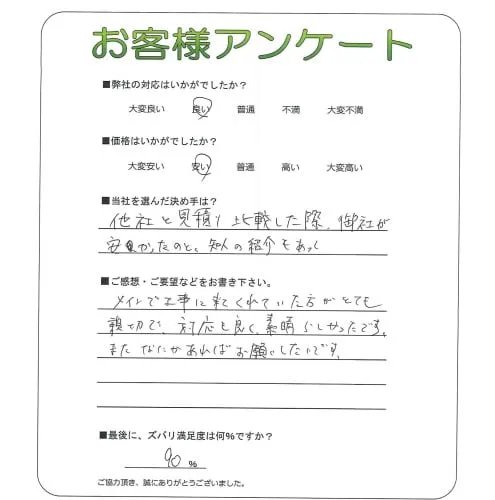 お客様アンケート
■弊社の対応はいかがでしたか？
大変良い 良い 普通 不満 大変不満
■価格はいかがでしたか？
大変安い 安い 普通 高い 大変高い
■当社を選んだ決め手は？
他社と見積り比較した際、御社が
安かったのと、知人の紹介もあっ
■ご感想・ご要望などをお書き下さい。
メインで工事に来てくれていた方がとても
親切で、対応も良く、素晴らしかったです。
またなにかあればお願いしたいです。
■最後に、ズバリ満足度は何%ですか？
90 %
ご協力頂き、誠にありがとうございました。